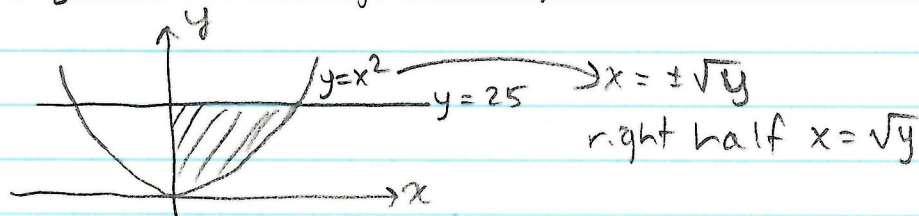 y
y=x² → x = ±√y
y = 25
right half x = √y
x